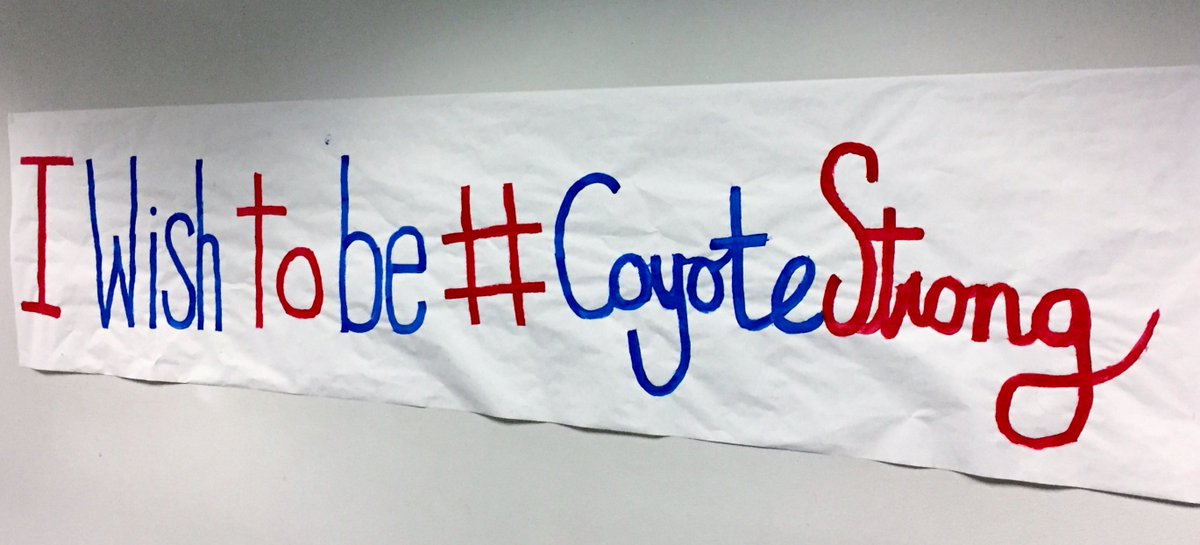 I Wish to be #CoyoteStrong